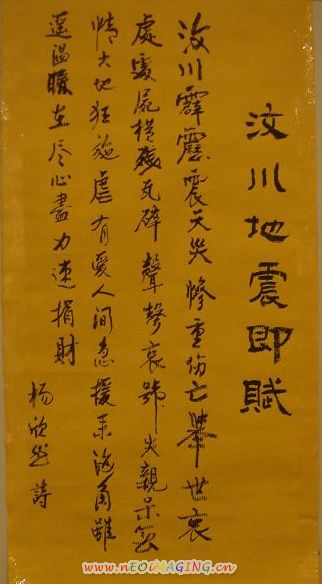 汶川地震即賦
汶川霹靂震天灾慘重伤亡舉世哀
處處屍橫殘瓦碎聲聲哀號失親呆無
情大地狂施虐有愛人间急援来海角雖
遥温暖在尽心盡力速捐財
楊 詩
www.nEOiMAGING.cn